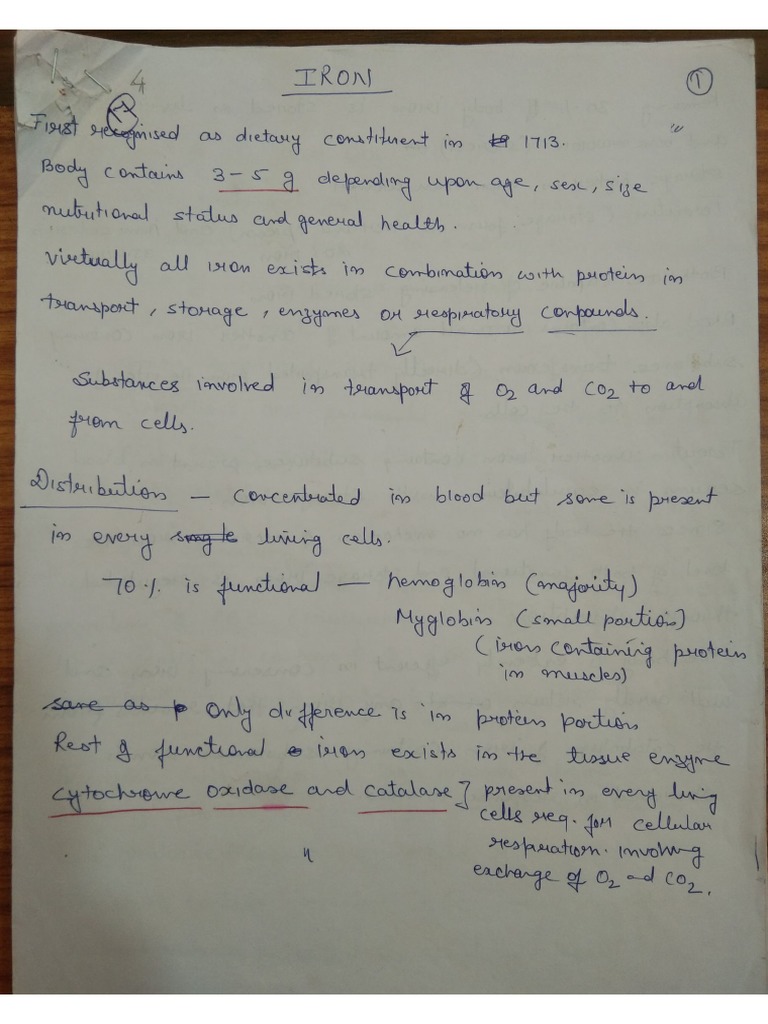 4
IRON
1
First recognised as dietary constituent in 1713.
Body contains 3-5 g depending upon age, sex, size
nutritional status and general health.
Virtually all iron exists in combination with protein in
transport, storage, enzymes or respiratory compounds.
Substances involved in transport of O2 and CO2 to and
from cells.
Distribution - concentrated in blood but some is present
in every single living cells.
70% is functional - hemoglobin (majority)
Myglobin (small portion)
(iron containing protein
in muscles)
same as p Only difference is in protein portion
Rest of functional iron exists in the tissue enzyme
cytochrome oxidase and catalase] present in every living
cells req. for cellular
respiration. involving
exchange of O2 and CO2.